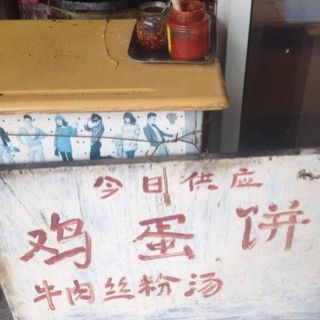 今日供应
鸡蛋饼
牛肉丝粉汤